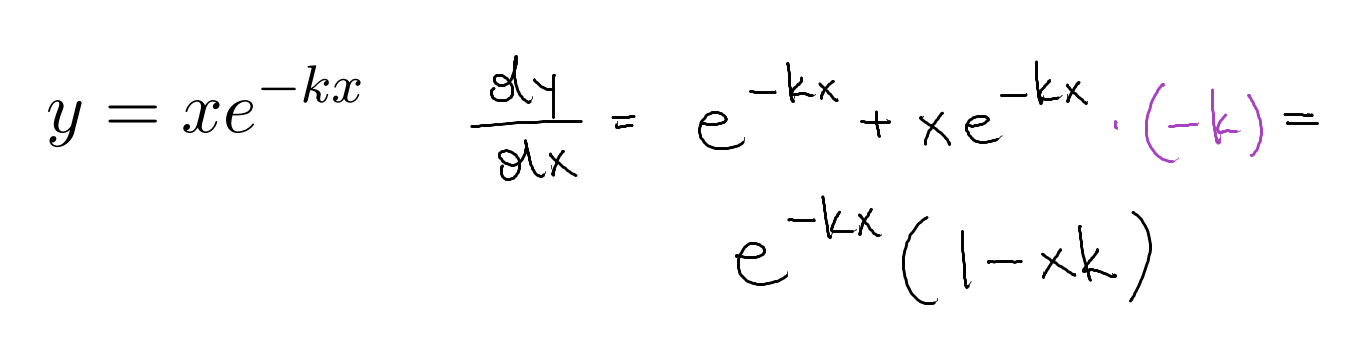 y = xe^{-kx} dy/dx = e^{-kx} + xe^{-kx} · (-k) =
e^{-kx} (1 - xk)